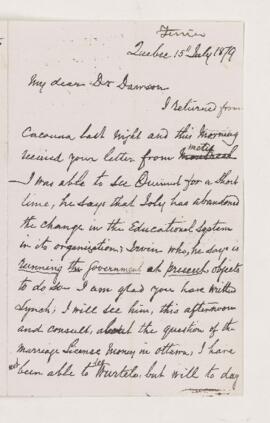 Ferrier
Quebec 15th July 1879
My dear Dr Dawson
I returned from
Cacouna last night and this morning
received your letter from Metis
– I was able to see Ouimet for a short
time, he says that Joly has abandoned
the change in the Educational System
in its organization; Irvine who, he says is
running the Government at present objects
to do so – I am glad you have written
Lynch; I will see him, this afternoon
and consult, about the question of the
marriage License Money in Ottawa, I have
not been able to see Wurtele, but will to day